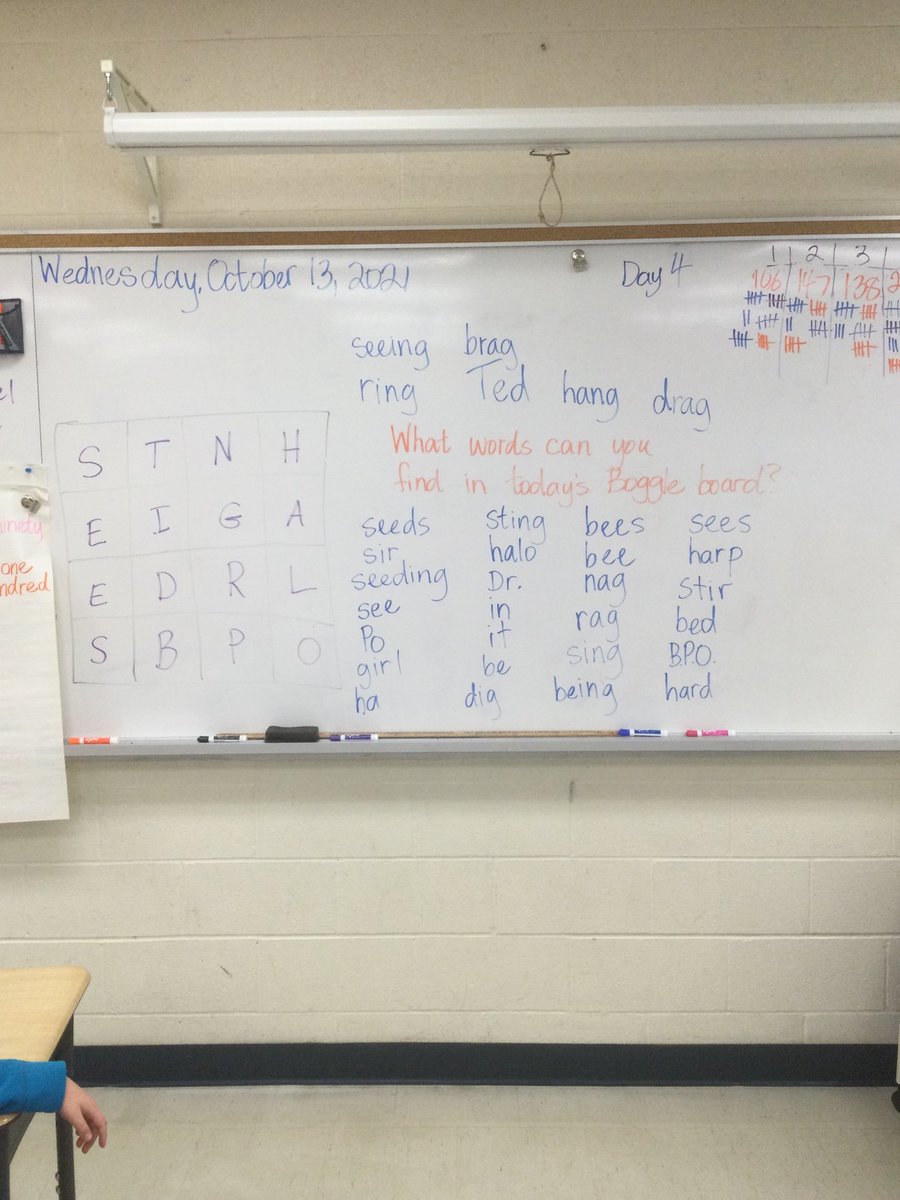 Wednesday, October 13, 2021
Day 4
1 2 3
106 147 138 2
seeing brag
ring Ted hang drag
What words can you
find in today's Boggle board?
S T N H
E I G A
E D R L
S B P O
seeds sting bees sees
sir halo bee harp
seeding Dr. nag stir
see in rag bed
Po it sing B.P.O.
girl be being hard
ha dig
el
ninety
one
ndred